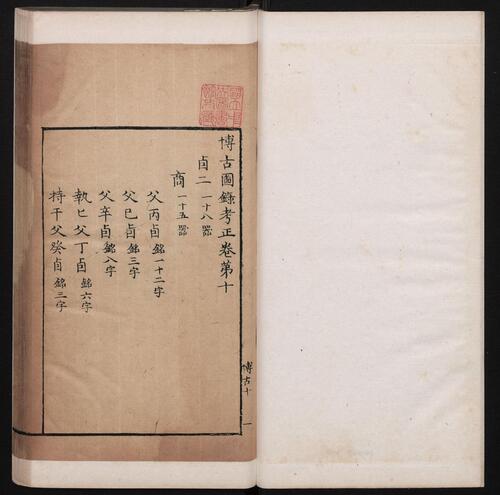 博古圖錄考正卷第十
卣二 一十八器
商 一十五器
父丙卣 銘一十二字
父巳卣 銘三字
父辛卣 銘八字
執匕父丁卣 銘六字
持干父癸卣 銘三字
博古十
一